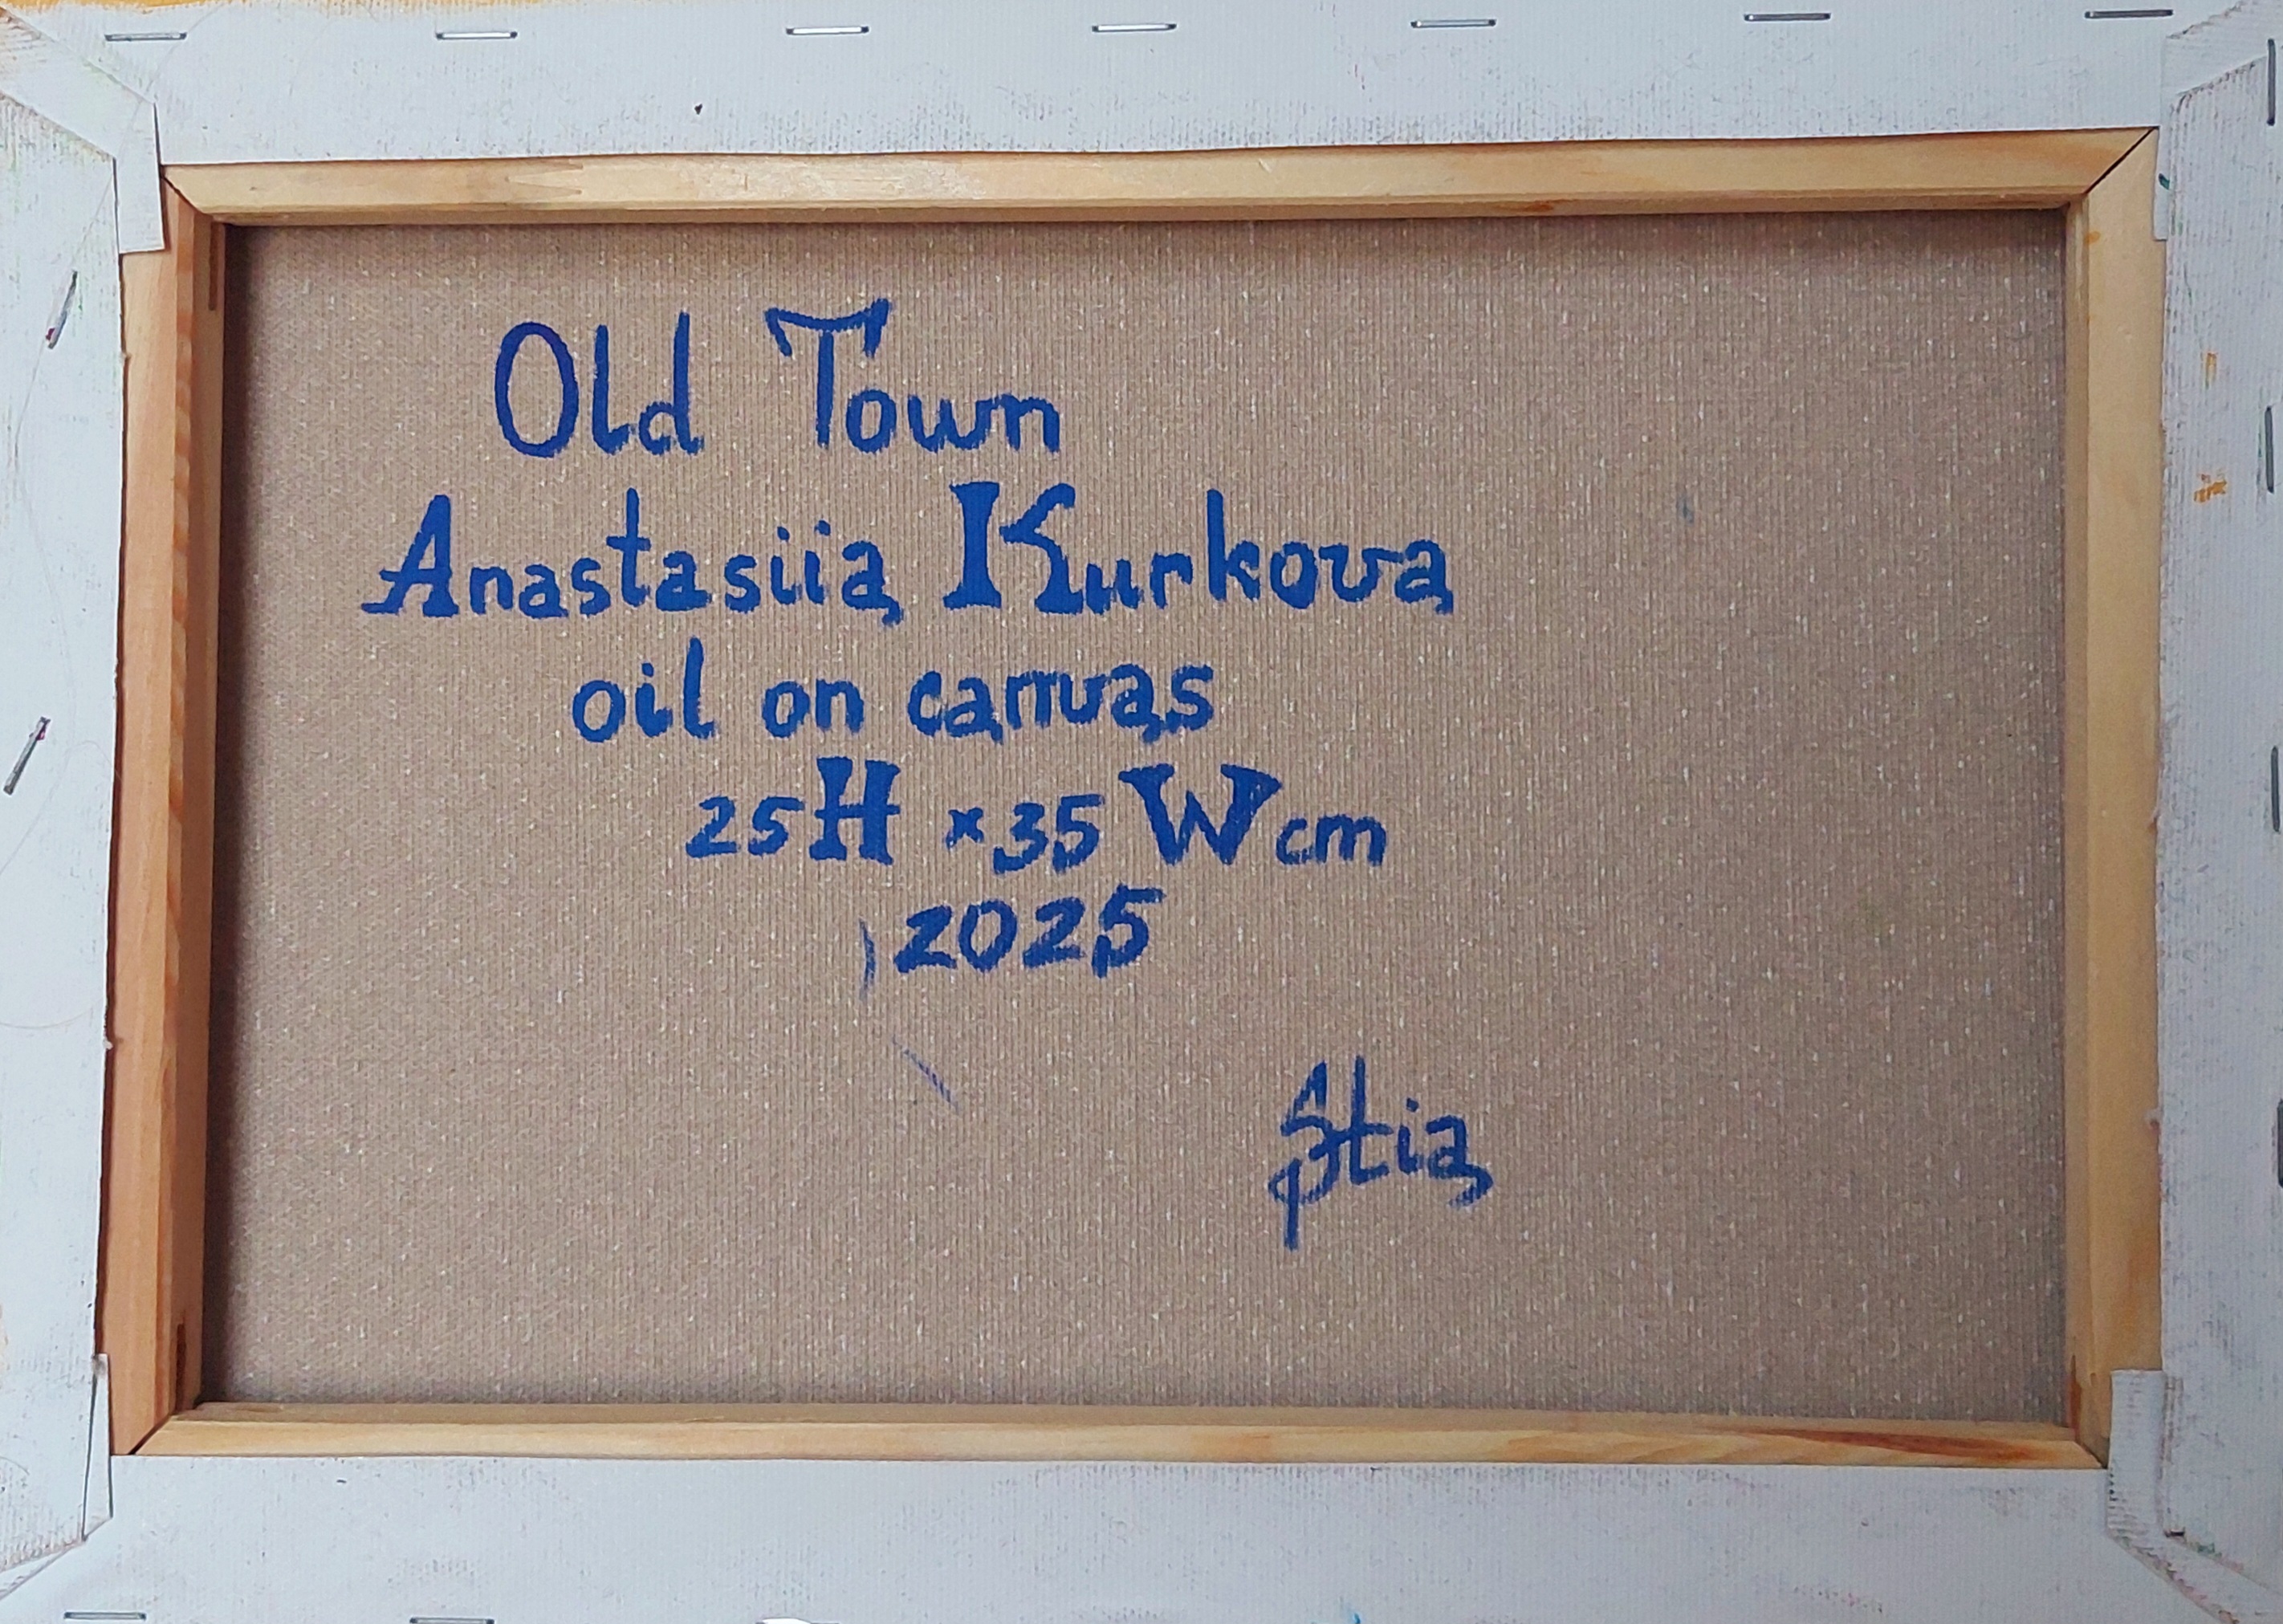 Old Town
Anastasiia Kurkova
oil on canvas
25H × 35 W cm
2025
Stia